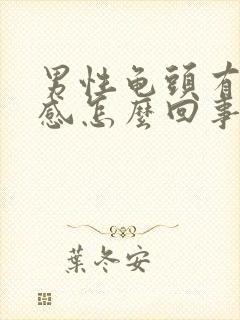 男性龟頭有
感怎麼回事
葉冬安